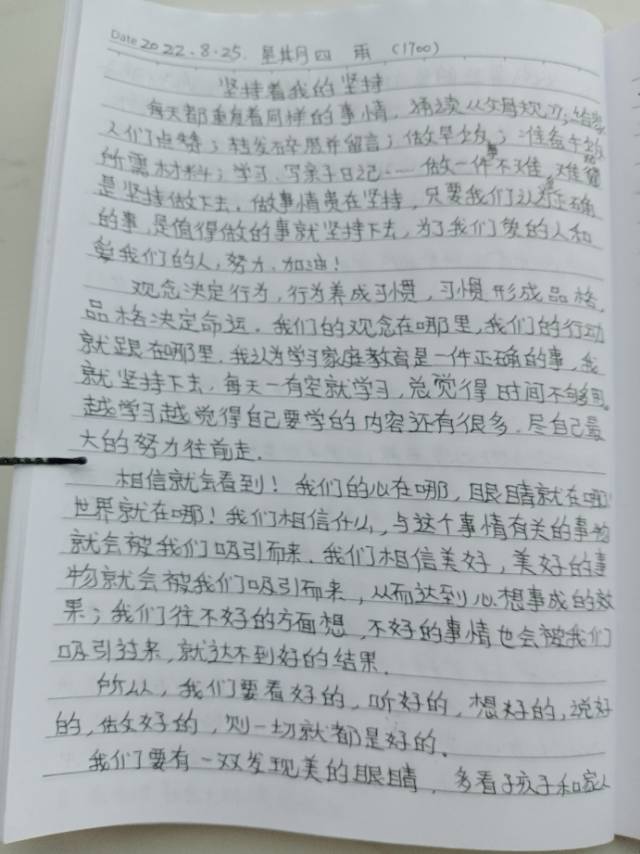 Date 2022.8.25. 星期四 雨 (1700)
坚持着我的坚持
每天都重复着同样的事情，诵读父母规；给家
人们点赞；转发并留言；做早饭；准备午饭
所需材料；学习、写亲子日记……做一件不难，难能
是坚持做下去，做事情贵在坚持，只要我们认为正确
的事，是值得做的事就坚持下去，为了我们爱的人和
爱我们的人，努力，加油！
观念决定行为，行为养成习惯，习惯形成品格，
品格决定命运。我们的观念在哪里，我们的行动
就跟在哪里。我认为学习家庭教育是一件正确的事，我
就坚持下去，每天一有空就学习，总觉得时间不够用。
越学习越觉得自己要学的内容还有很多，尽自己最
大的努力往前走。
相信就会看到！我们的心在哪，眼睛就在哪！
世界就在哪！我们相信什么，与这个事情有关的事物
就会被我们吸引而来。我们相信美好，美好的事
物就会被我们吸引而来，从而达到心想事成的效
果；我们往不好的方面想，不好的事情也会被我们
吸引过来，就达不到好的结果。
所以，我们要看好的，听好的，想好的，说好
的，做好的，则一切就都是好的。
我们要有一双发现美的眼睛，多看孩子和家人